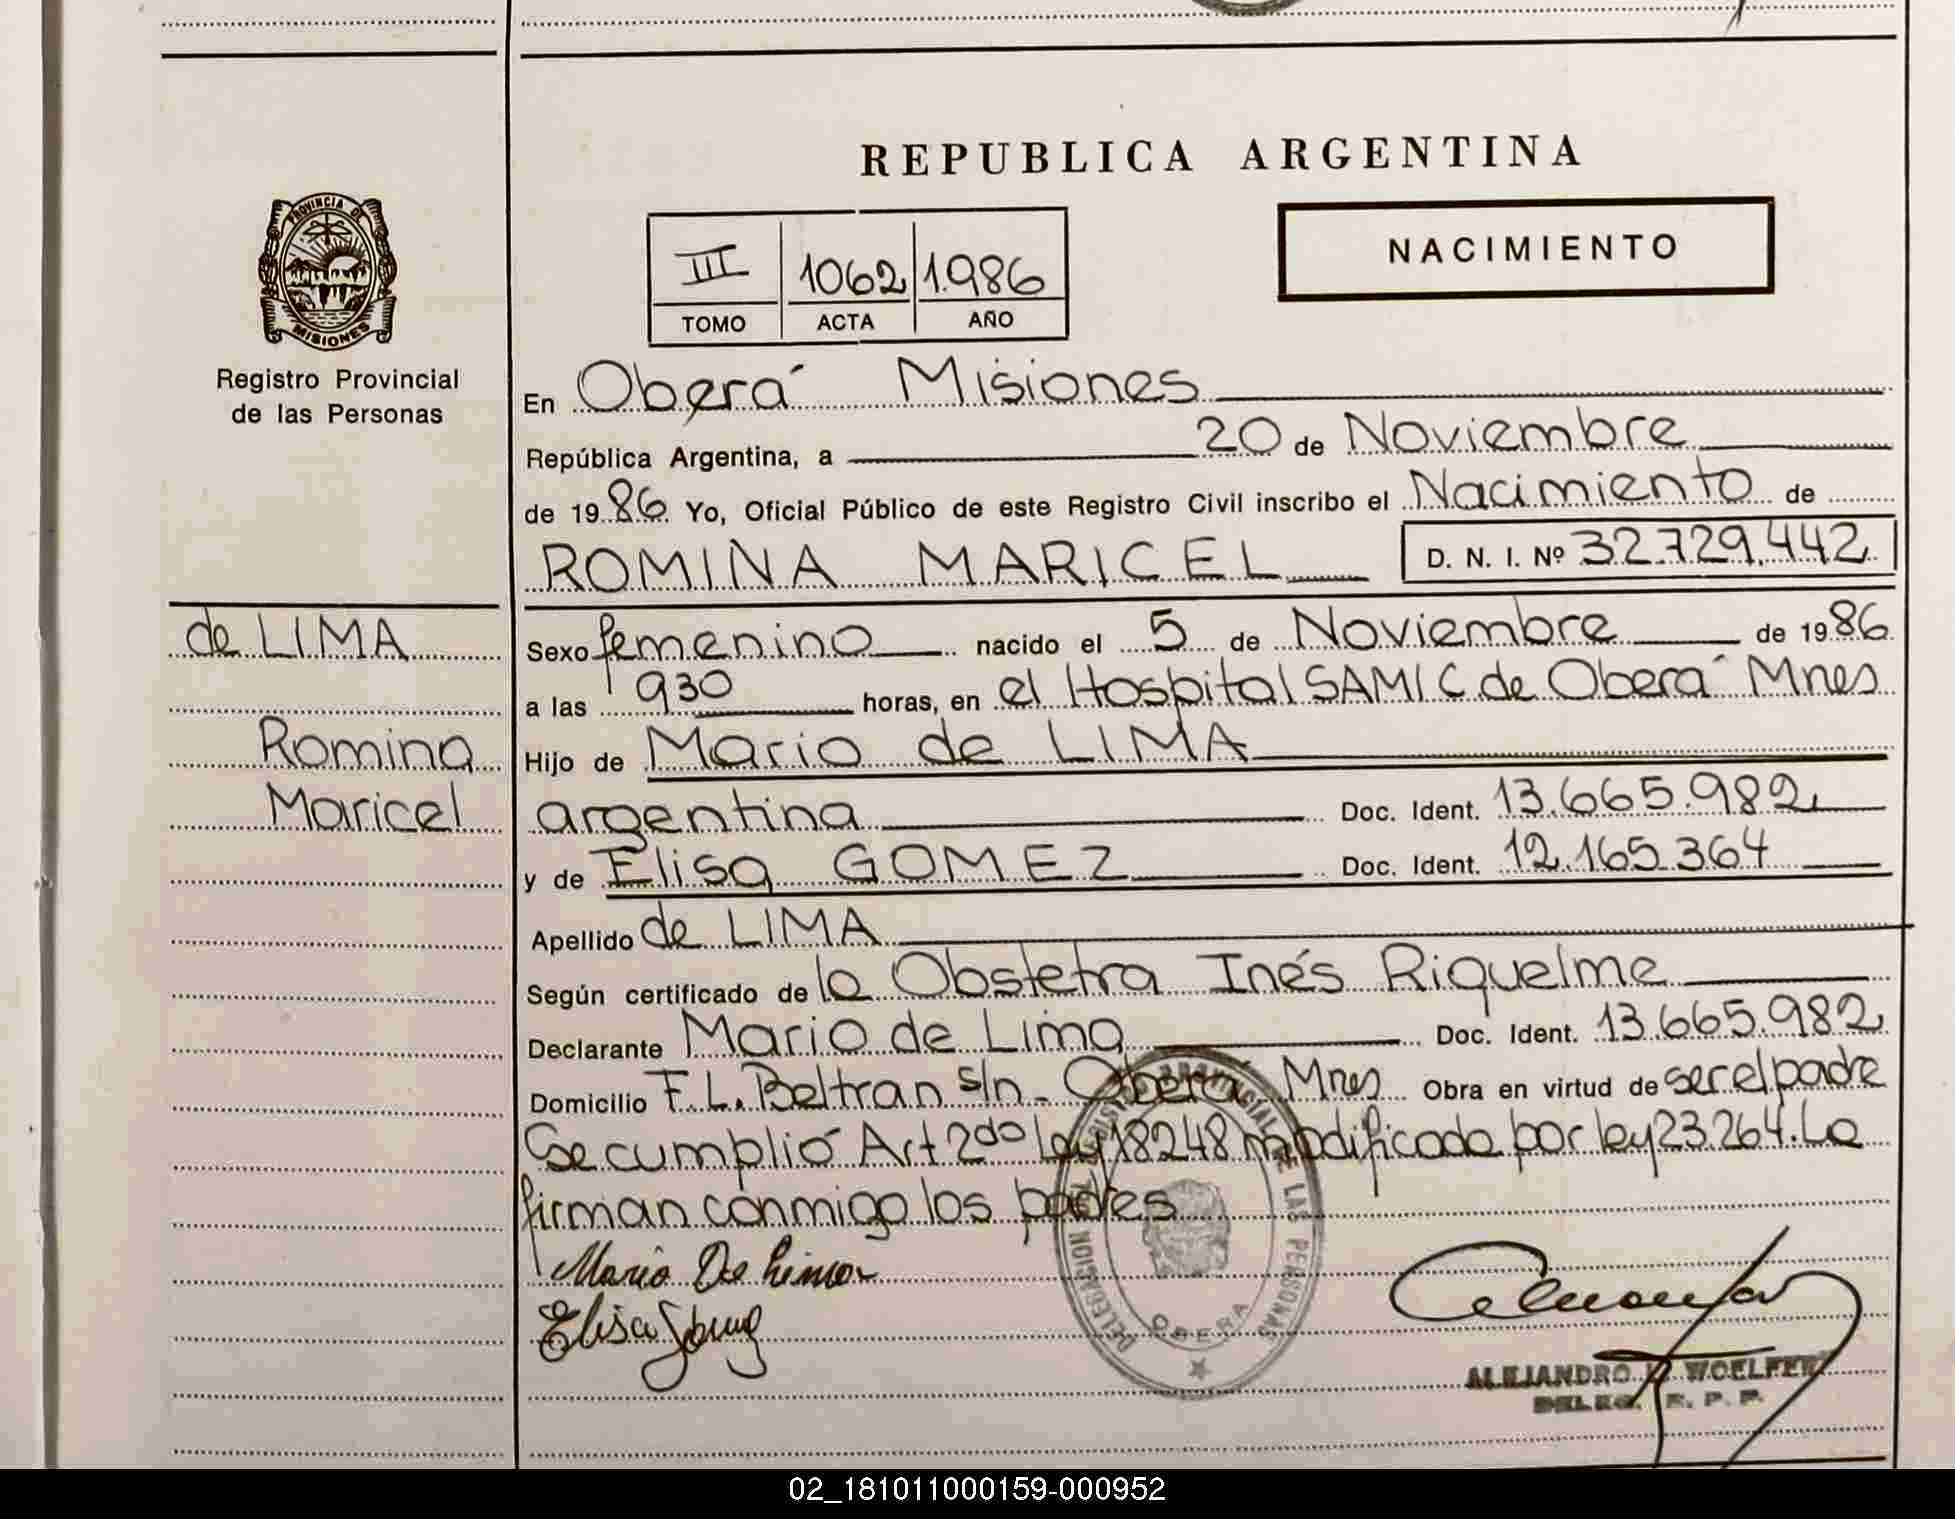 REPUBLICA ARGENTINA
PROVINCIA DE
MISIONES
Registro Provincial
de las Personas
III 1062 1.986
TOMO ACTA AÑO
NACIMIENTO
En Oberá Misiones
República Argentina, a 20 de Noviembre
de 1986 Yo, Oficial Público de este Registro Civil inscribo el Nacimiento de
ROMINA MARICEL D. N. I. Nº 32.729.442
de LIMA
Romina
Maricel
Sexo femenino nacido el 5 de Noviembre de 1986
a las 930 horas, en el Hospital SAMIC de Oberá Mnes
Hijo de Mario de LIMA
argentina Doc. Ident. 13.665.982
y de Elisa GOMEZ Doc. Ident. 12.165.364
Apellido de LIMA
Según certificado de la Obstetra Inés Riquelme
Declarante Mario de Lima Doc. Ident. 13.665.982
Domicilio F.L. Beltran s/n. Oberá Mnes Obra en virtud de ser el padre
Se cumplió Art 2do Ley 18248 modificada por ley 23.264. La
firman conmigo los padres
Mario De Lima
Elisa Gomez
DELEGACION DEL REGISTRO PROVINCIAL DE LAS PERSONAS
OBERA
ALEJANDRO WOELFERT
DELEG. R. P. P.
02_181011000159-000952